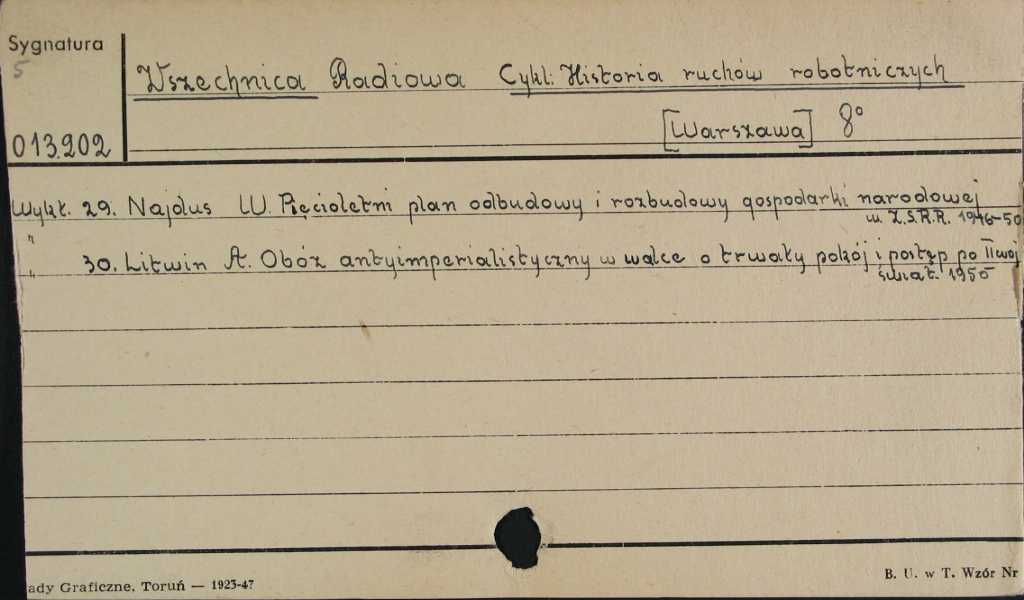 Sygnatura
5
Wszechnica Radiowa Cykl: Historia ruchów robotniczych
013.202
[Warszawa] 8°
Wykł. 29. Najdus W. Pięcioletni plan odbudowy i rozbudowy gospodarki narodowej
w Z.S.R.R. 1946-50
" 30. Litwin A. Obóz antyimperialistyczny w walce o trwały pokój i postęp po II woj
świat. 1950
ady Graficzne, Toruń — 1923-47
B. U. w T. Wzór Nr